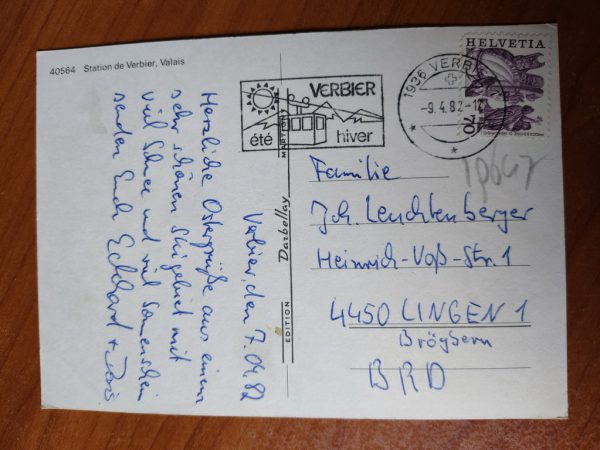 40564 Station de Verbier, Valais
Verbier, den 7.04.82
Herzliche Ostergrüße aus einem
sehr schönen Skigebiet mit
viel Schnee und viel Sonnenschein
senden Euch Eckhard +
EDITION Darbellay MARTIGNY
VERBIER
été hiver
1936 VERBIER
-9.4.82-12
HELVETIA
70
Familie
Joh. Leuchtenberger
Heinrich-Voß-Str. 1
4450 LINGEN 1
Brögbern
BRD